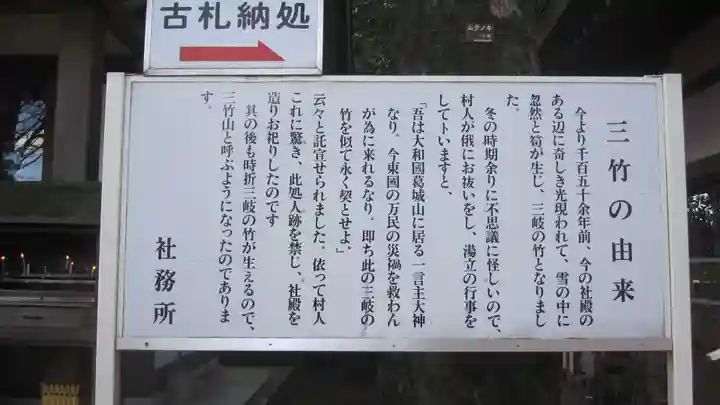 古札納処
ムクノキ
三竹の由来
今より千百五十余年前、今の社殿の
ある辺に奇しき光現われて、雪の中に
忽然と筍が生じ、三岐の竹となりまし
た。
冬の時期余りに不思議に怪しいので、
村人が俄にお祓いをし、湯立の行事を
して卜いますと、
「吾は大和國葛城山に居る一言主大神
なり、今東國の万民の災禍を救わん
が為に来れるなり。即ち此の三岐の
竹を似て永く契とせよ」
云々と託宣せられました。依って村人
これに驚き、此処人跡を禁し、社殿を
造りお祀りしたのです
其の後も時折三岐の竹が生えるので、
三竹山と呼ぶようになったのでありま
す。
社務所